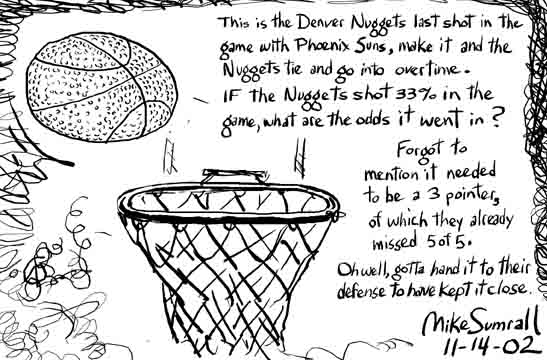 This is the Denver Nuggets last shot in the
game with Phoenix Suns, make it and the
Nuggets tie and go into overtime.
IF the Nuggets shot 33% in the
game, what are the odds it went in?
Forgot to
mention it needed
to be a 3 pointer,
of which they already
missed 5 of 5.
Oh well, gotta hand it to their
defense to have kept it close.
Mike Sumrall
11-14-02